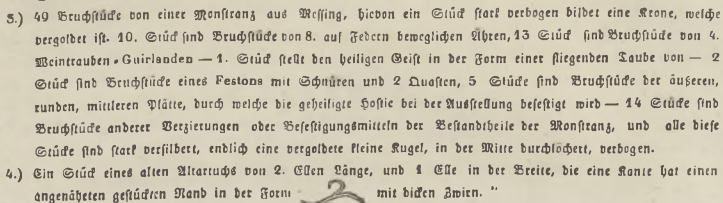 3.) 49 Bruchstücke von einer Monstranz aus Messing, hievon ein Stück stark verbogen bildet eine Krone, welche
vergoldet ist. 10. Stück sind Bruchstücke von 8. auf Federn beweglichen Ähren, 13 Stück sind Bruchstücke von 4.
Weintrauben-Guirlanden — 1. Stück stellt den heiligen Geist in der Form einer fliegenden Taube von — 2
Stück sind Bruchstücke eines Festons mit Schnüren und 2 Quasten, 5 Stücke sind Bruchstücke der äußeren,
runden, mittleren Plätte, durch welche die geheiligte Hostie bei der Ausstellung befestigt wird — 14 Stücke sind
Bruchstücke anderer Verzierungen oder Befestigungsmitteln der Bestandtheile der Monstranz, und alle diese
Stücke sind stark versilbert, endlich eine vergoldete kleine Kugel, in der Mitte durchlöchert, verbogen.
4.) Ein Stück eines alten Altartuchs von 2. Ellen Länge, und 1 Elle in der Breite, die eine Kante hat einen
angenäheten gestückten Rand in der Form mit dicken Zwirn. "